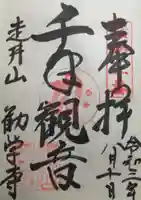 奉拝
令和二年
八月十一日
千手観音
走井山
勧学寺